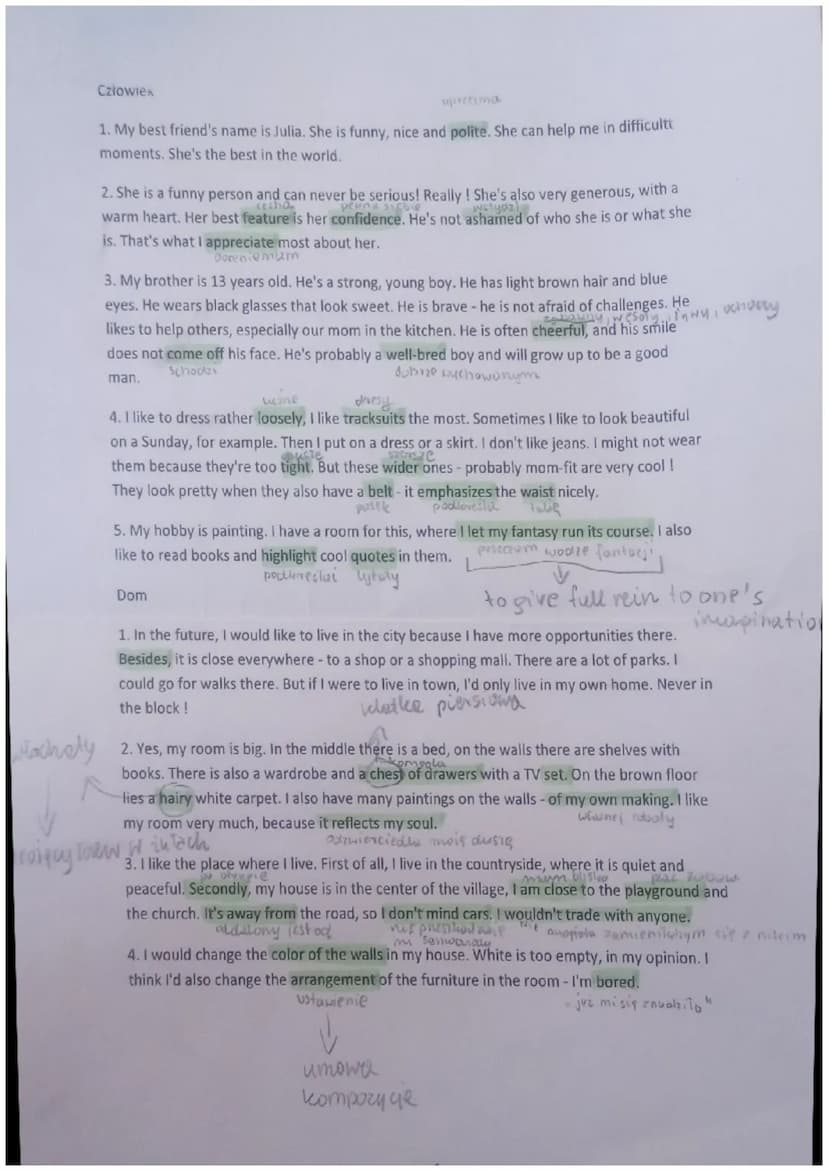 Człowiek
uprzejma
1. My best friend's name is Julia. She is funny, nice and polite. She can help me in difficult
moments. She's the best in the world.
2. She is a funny person and can never be serious! Really ! She's also very generous, with a
cecha pewna siebie wstydzi
warm heart. Her best feature is her confidence. He's not ashamed of who she is or what she
is. That's what I appreciate most about her.
doceniam
3. My brother is 13 years old. He's a strong, young boy. He has light brown hair and blue
eyes. He wears black glasses that look sweet. He is brave - he is not afraid of challenges. He
zabawny, wesoły, żywy, ochoczy
likes to help others, especially our mom in the kitchen. He is often cheerful, and his smile
does not come off his face. He's probably a well-bred boy and will grow up to be a good
schodzi dobrze wychowanym
man.
luźno dresy
4. I like to dress rather loosely, I like tracksuits the most. Sometimes I like to look beautiful
on a Sunday, for example. Then I put on a dress or a skirt. I don't like jeans. I might not wear
szersze
them because they're too tight. But these wider ones - probably mom-fit are very cool !
They look pretty when they also have a belt - it emphasizes the waist nicely.
pasek podkreśla talię
5. My hobby is painting. I have a room for this, where I let my fantasy run its course. I also
like to read books and highlight cool quotes in them.
puszczam wodze fantazji
podkreślać cytaty
to give full rein to one's
imagination
Dom
1. In the future, I would like to live in the city because I have more opportunities there.
Besides, it is close everywhere - to a shop or a shopping mall. There are a lot of parks. I
could go for walks there. But if I were to live in town, I'd only live in my own home. Never in
the block !
klatka piersiowa
włochaty
2. Yes, my room is big. In the middle there is a bed, on the walls there are shelves with
komoda
books. There is also a wardrobe and a chest of drawers with a TV set. On the brown floor
lies a hairy white carpet. I also have many paintings on the walls - of my own making. I like
własnej roboty
my room very much, because it reflects my soul.
odzwierciedla moją duszę
mrożący krew w żyłach
3. I like the place where I live. First of all, I live in the countryside, where it is quiet and
po drugie mam blisko plac zabaw
peaceful. Secondly, my house is in the center of the village, I am close to the playground and
the church. It's away from the road, so I don't mind cars. I wouldn't trade with anyone.
oddalony jest od nie przeszkadzają mi samochody nie zamieniłabym się z nikim
4. I would change the color of the walls in my house. White is too empty, in my opinion. I
think I'd also change the arrangement of the furniture in the room - I'm bored.
ustawienie "już mi się znudziło"
umowa
kompozycje